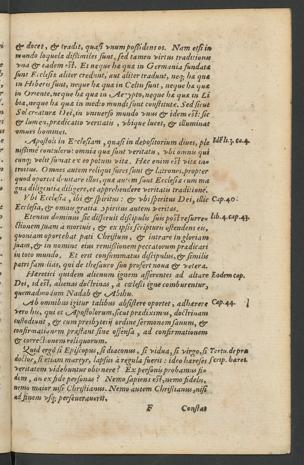 & docet, & tradit, quasi vnum possidens os. Nam etsi in
mundo loquelæ dissimiles sunt, sed tamen virtus traditionis
vna & eadem est. Et neque hæ quæ in Germania fundatæ
sunt Ecclesiæ aliter credunt, aut aliter tradunt, neq; hæ quæ
in Hiberis sunt, neque hæ quæ in Celtis sunt, neque hæ quæ
in Oriente, neque hæ quæ in Aegypto, neque hæ quæ in Li
bia, neque hæ quæ in medio mundi sunt constitutæ. Sed sicut
Sol creatura Dei, in vniuerso mundo vnus & idem est: sic
& lumen, prædicatio veritatis, vbique lucet, & illuminat
omnes homines.
Apostoli in Ecclesiam, quasi in depositorium diues, ple
nissime contulerunt omnia quæ sunt veritatis, vbi omnis qui
cunq; velit sumat ex eo potum vitæ. Hæc enim est vitæ in-
troitus. Omnes autem reliqui fures sunt & latrones, propter
quod oportet deuitare illos, quæ autem sunt Ecclesiæ cum ma
gna diligentia diligere, et apprehendere veritatis traditionem.
Vbi Ecclesia, ibi & spiritus: & vbi spiritus Dei, illic
Ecclesia, & omnis gratia. Spiritus autem veritas.
Cap 40.
Etenim dominus sic disseruit discipulis suis post resurre-
ctionem suam à mortuis, & ex ipsis scripturis ostendens eis,
quoniam oportebat pati Christum, & intrare in gloriam
suam, & in nomine eius remissionem peccatorum prædicari
in toto mundo. Et erit consummatus discipulus, & similis
patrifamilias, qui de thesauro suo profert noua & vetera.
lib. 4. cap. 43.
Hæretici quidem alienum ignem afferentes ad altare
Dei, id est, alienas doctrinas, à cœlesti igne comburentur,
quemadmodum Nadab & Abihu.
Eodem cap.
Ab omnibus igitur talibus absistere oportet, adhærere
vero his, qui et Apostolorum, sicut prædiximus, doctrinam
custodiunt, & cum presbyterij ordine sermonem sanum, &
conformationem præstant sine offensa, ad confirmationem
& correctionem reliquorum.
Cap. 44.
Quid ergo si Episcopus, si diaconus, si vidua, si virgo, si
doctor, si etiam martyr, lapsus à regula fuerit: ideo hæreses
veritatem videbuntur obtinere? Ex personis probamus fi-
dem, an ex fide personas? Nemo sapiens est, nemo fidelis,
nemo maior nisi Christianus. Nemo autem Christianus, nisi
ad finem vsq; perseuerauerit.
F Constat